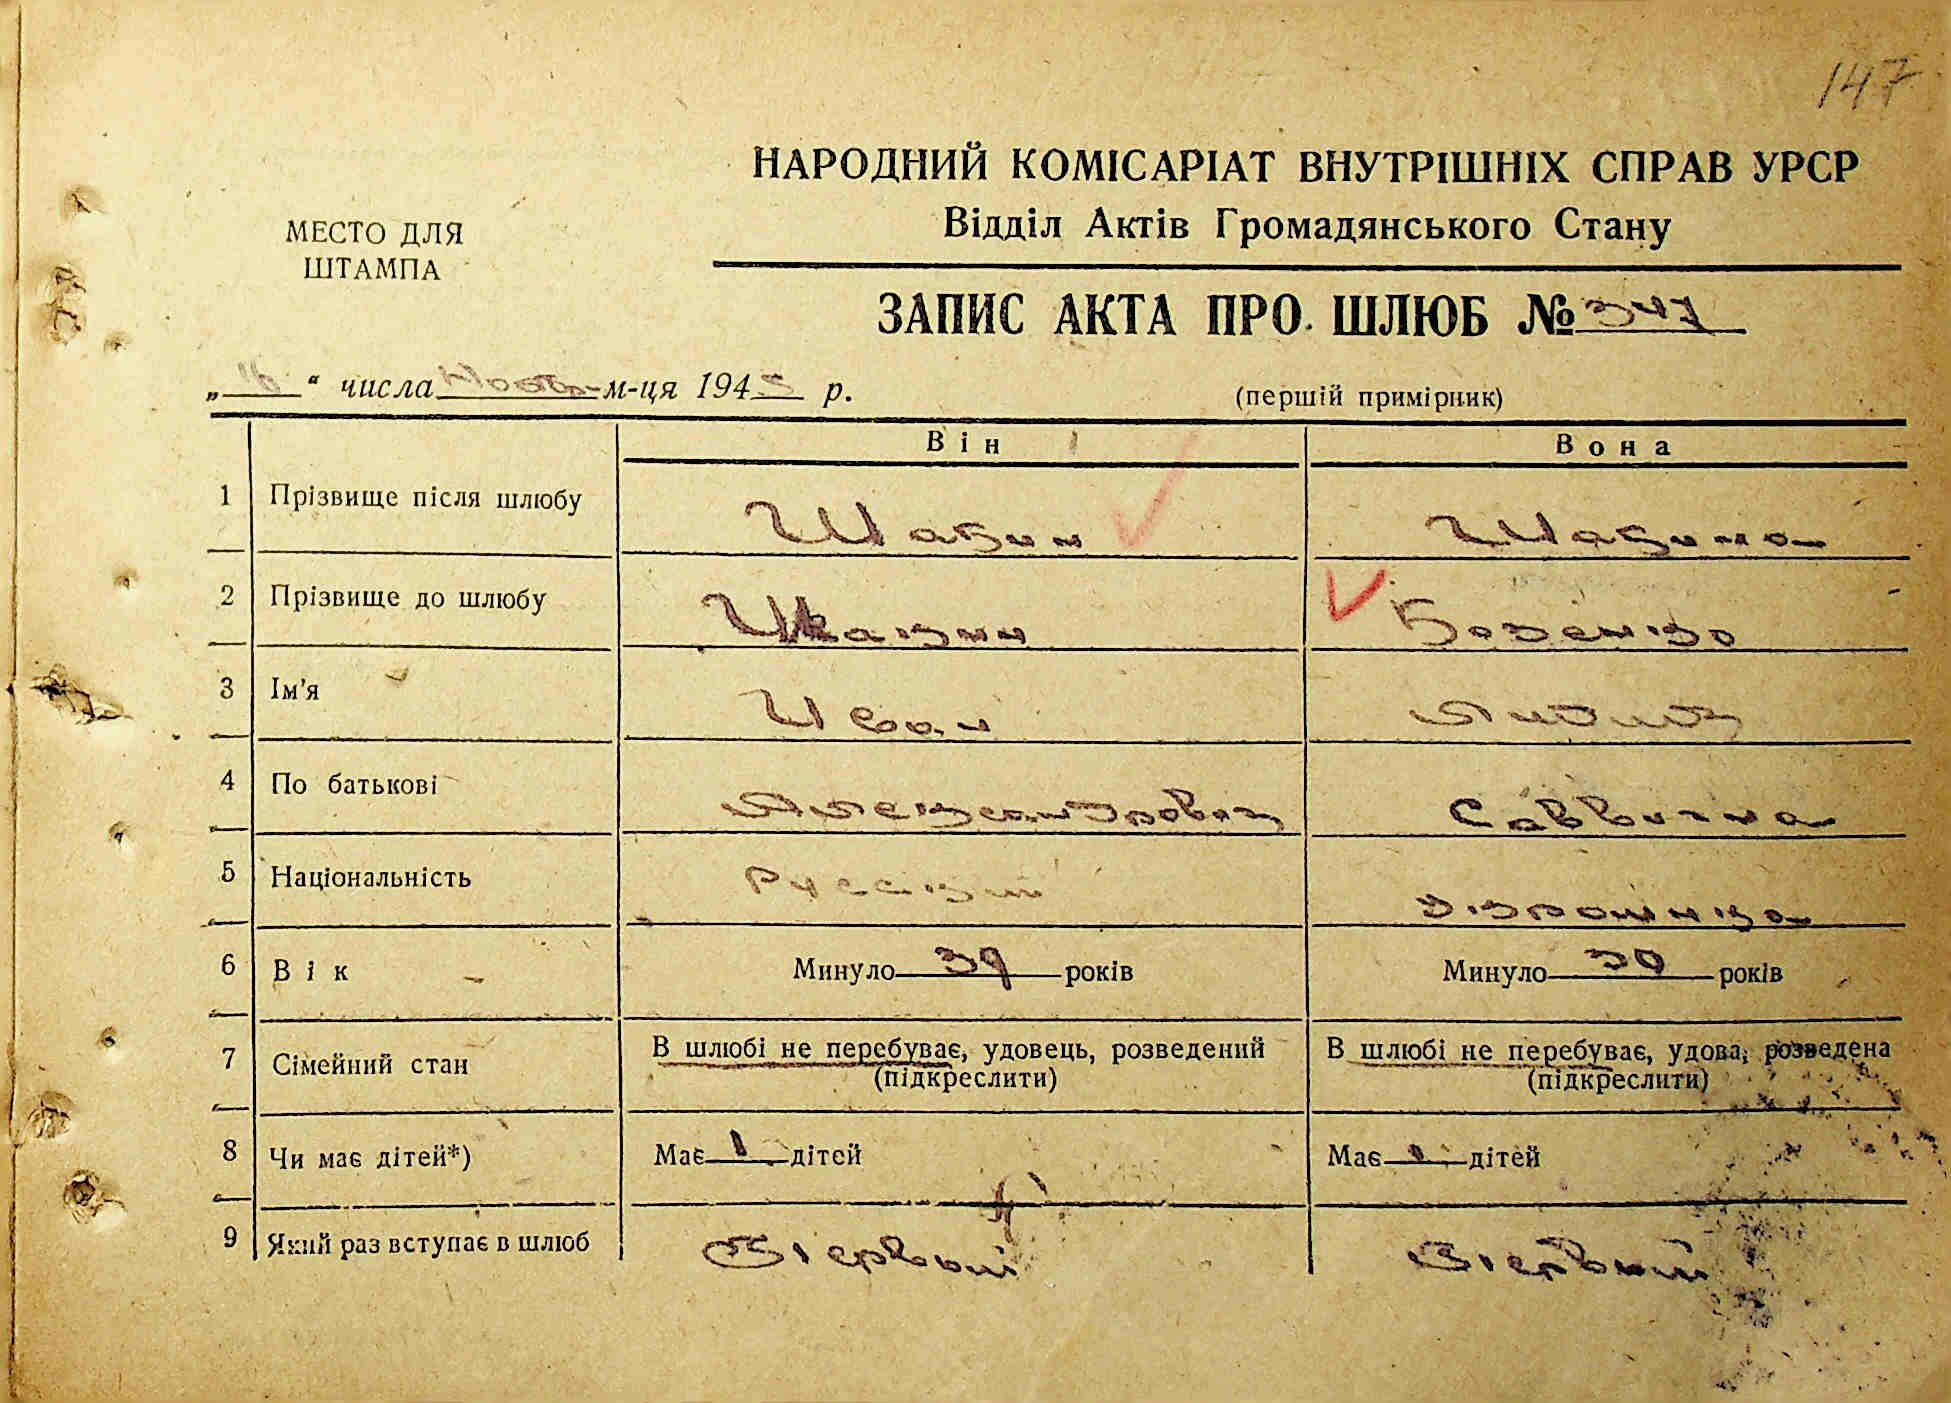 147
НАРОДНИЙ КОМІСАРІАТ ВНУТРІШНІХ СПРАВ УРСР
Відділ Актів Громадянського Стану
МЕСТО ДЛЯ
ШТАМПА
ЗАПИС АКТА ПРО ШЛЮБ № 347
„16“ числа м-ця 1945 р.
(перший примірник)
Він Вона
1 Прізвище після шлюбу
2 Прізвище до шлюбу
3 Ім'я Иван Лидия
4 По батькові Александрович Саввична
5 Національність Русский Украинка
6 Вік Минуло 39 років Минуло 30 років
7 Сімейний стан В шлюбі не перебуває, удовець, розведений В шлюбі не перебуває, удова, розведена
(підкреслити) (підкреслити)
8 Чи має дітей*) Має 1 дітей Має дітей
9 Який раз вступає в шлюб Первый Первый